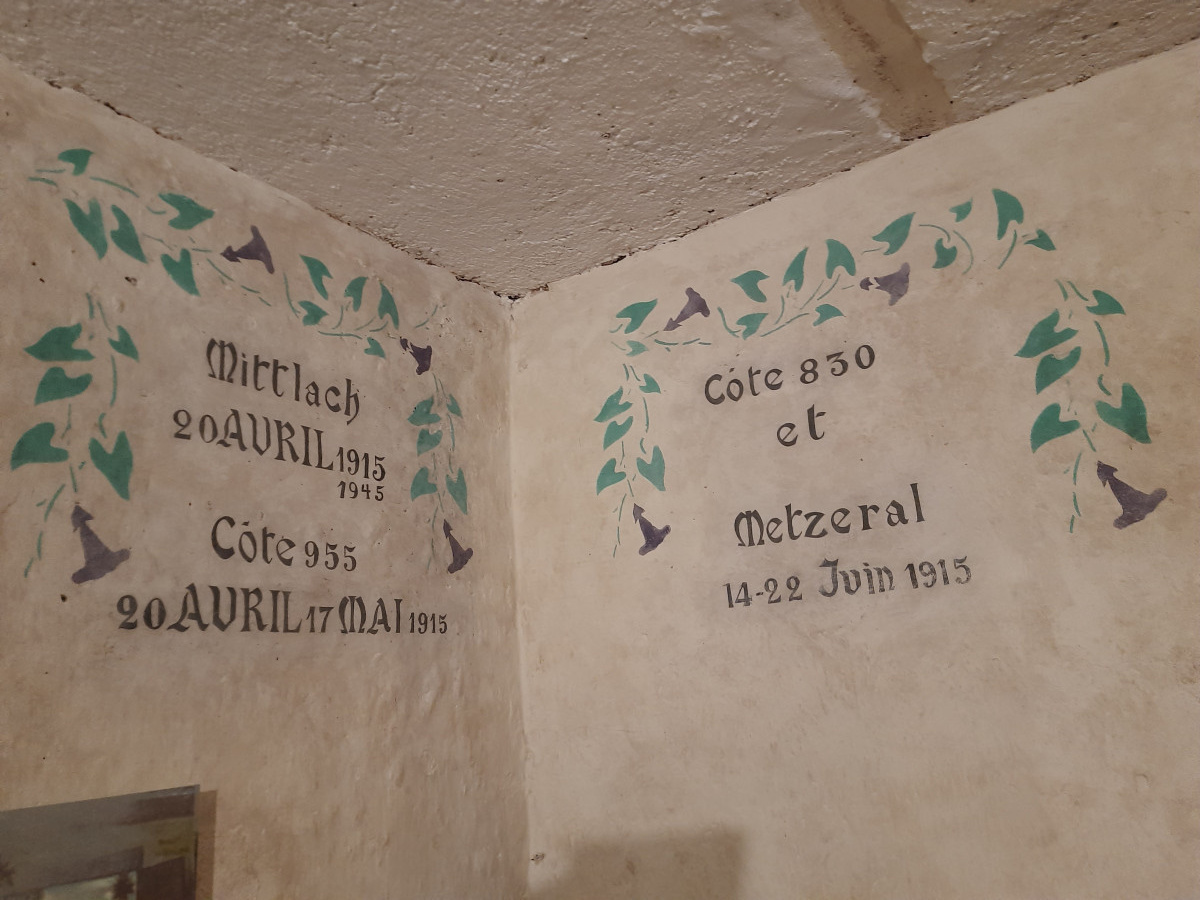 Mittlach
20 AVRIL 1915
1945
Côte 955
20 AVRIL 17 MAI 1915
Côte 830
et
Metzeral
14-22 Juin 1915